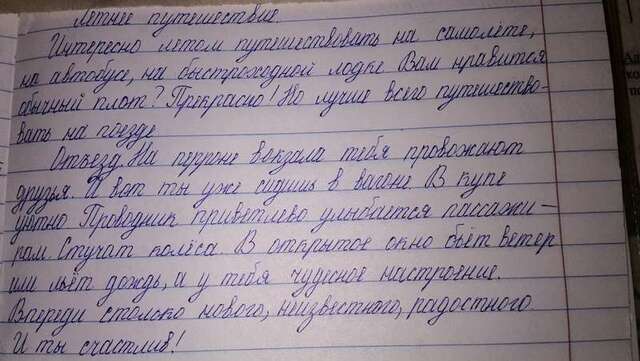 Летнее путешествие.
Интересно летом путешествовать на самолёте,
на автобусе, на быстроходной лодке Вам нравится
обычный плот? Прекрасно! Но лучше всего путешество-
вать на поезде
Отъезд. На перроне вокзала тебя провожают
друзья. И вот ты уже сидишь в вагоне. В купе
уютно Проводник приветливо улыбается пассажи-
рам. Стучат колёса. В открытое окно бьёт ветер
или льёт дождь, а у тебя чудесное настроение.
Впереди столько нового, неизвестного, радостного.
И ты счастлив!